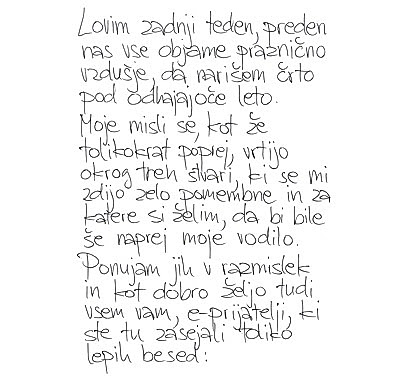 Lovim zadnji teden, preden
nas vse objame praznično
vzdušje, da narišem črto
pod odhajajoče leto.
Moje misli se, kot že
tolikokrat poprej, vrtijo
okrog treh stvari, ki se mi
zdijo zelo pomembne in za
katere si želim, da bi bile
še naprej moje vodilo.
Ponujam jih v razmislek
in kot dobro željo tudi
vsem vam, e-prijatelji, ki
ste tu zasejali toliko
lepih besed: